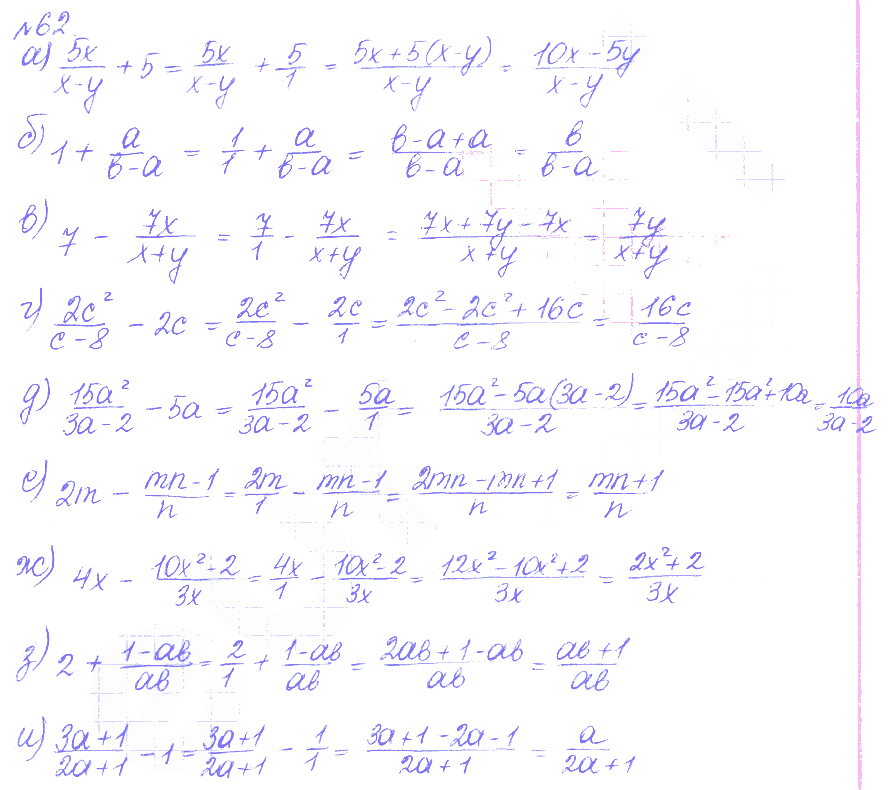 №62
а) 5x/(x-y) + 5 = 5x/(x-y) + 5/1 = (5x+5(x-y))/(x-y) = (10x-5y)/(x-y)
б) 1 + a/(b-a) = 1/1 + a/(b-a) = (b-a+a)/(b-a) = b/(b-a)
в) 7 - 7x/(x+y) = 7/1 - 7x/(x+y) = (7x+7y-7x)/(x+y) = 7y/(x+y)
г) 2c²/(c-8) - 2c = 2c²/(c-8) - 2c/1 = (2c²-2c²+16c)/(c-8) = 16c/(c-8)
д) 15a²/(3a-2) - 5a = 15a²/(3a-2) - 5a/1 = (15a²-5a(3a-2))/(3a-2) = (15a²-15a²+10a)/(3a-2) = 10a/(3a-2)
е) 2m - (mn-1)/n = 2m/1 - (mn-1)/n = (2mn-mn+1)/n = (mn+1)/n
ж) 4x - (10x²-2)/3x = 4x/1 - (10x²-2)/3x = (12x²-10x²+2)/3x = (2x²+2)/3x
з) 2 + (1-ab)/ab = 2/1 + (1-ab)/ab = (2ab+1-ab)/ab = (ab+1)/ab
и) (3a+1)/(2a+1) - 1 = (3a+1)/(2a+1) - 1/1 = (3a+1-2a-1)/(2a+1) = a/(2a+1)